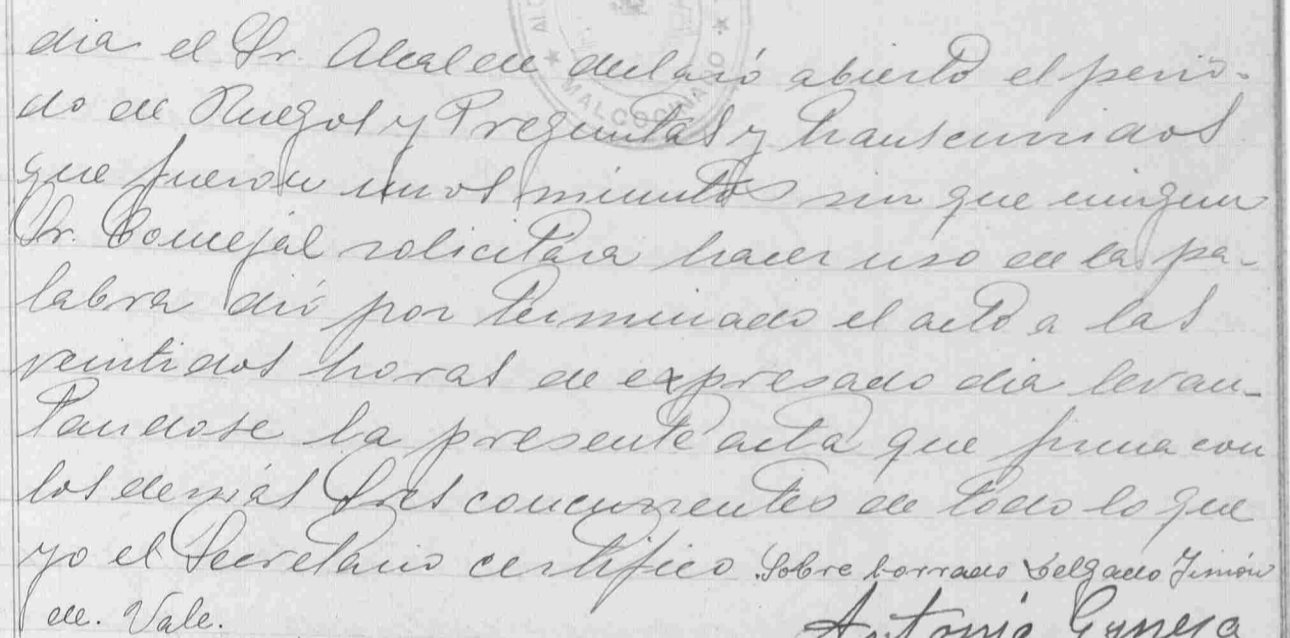 dia el Sr. Alcalde declaró abierto el perio-
do de Ruegos y Preguntas y transcurridos
que fueron unos minutos sin que ningun
Sr. Concejal solicitara hacer uso de la pa-
labra dió por terminado el acto a las
veintidos horas de expresado dia levan-
tandose la presente acta que firma con
los demás Sres concurrentes de todo lo que
yo el Secretario certifico. Sobre borrado Delgado
de. Vale.
MALCOCINADO
Antonio